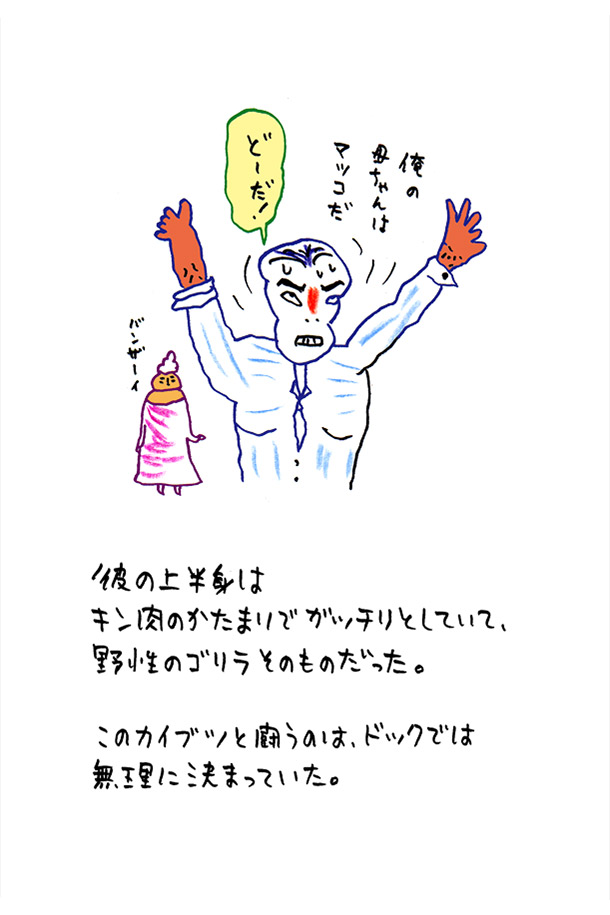 どーだ!
俺の
母ちゃんは
マツコだ
バンザーイ
彼の上半身は
キン肉のかたまりでガッチリとしていて、
野性のゴリラそのものだった。
このカイブツと闘うのは、ドックでは
無理に決まっていた。